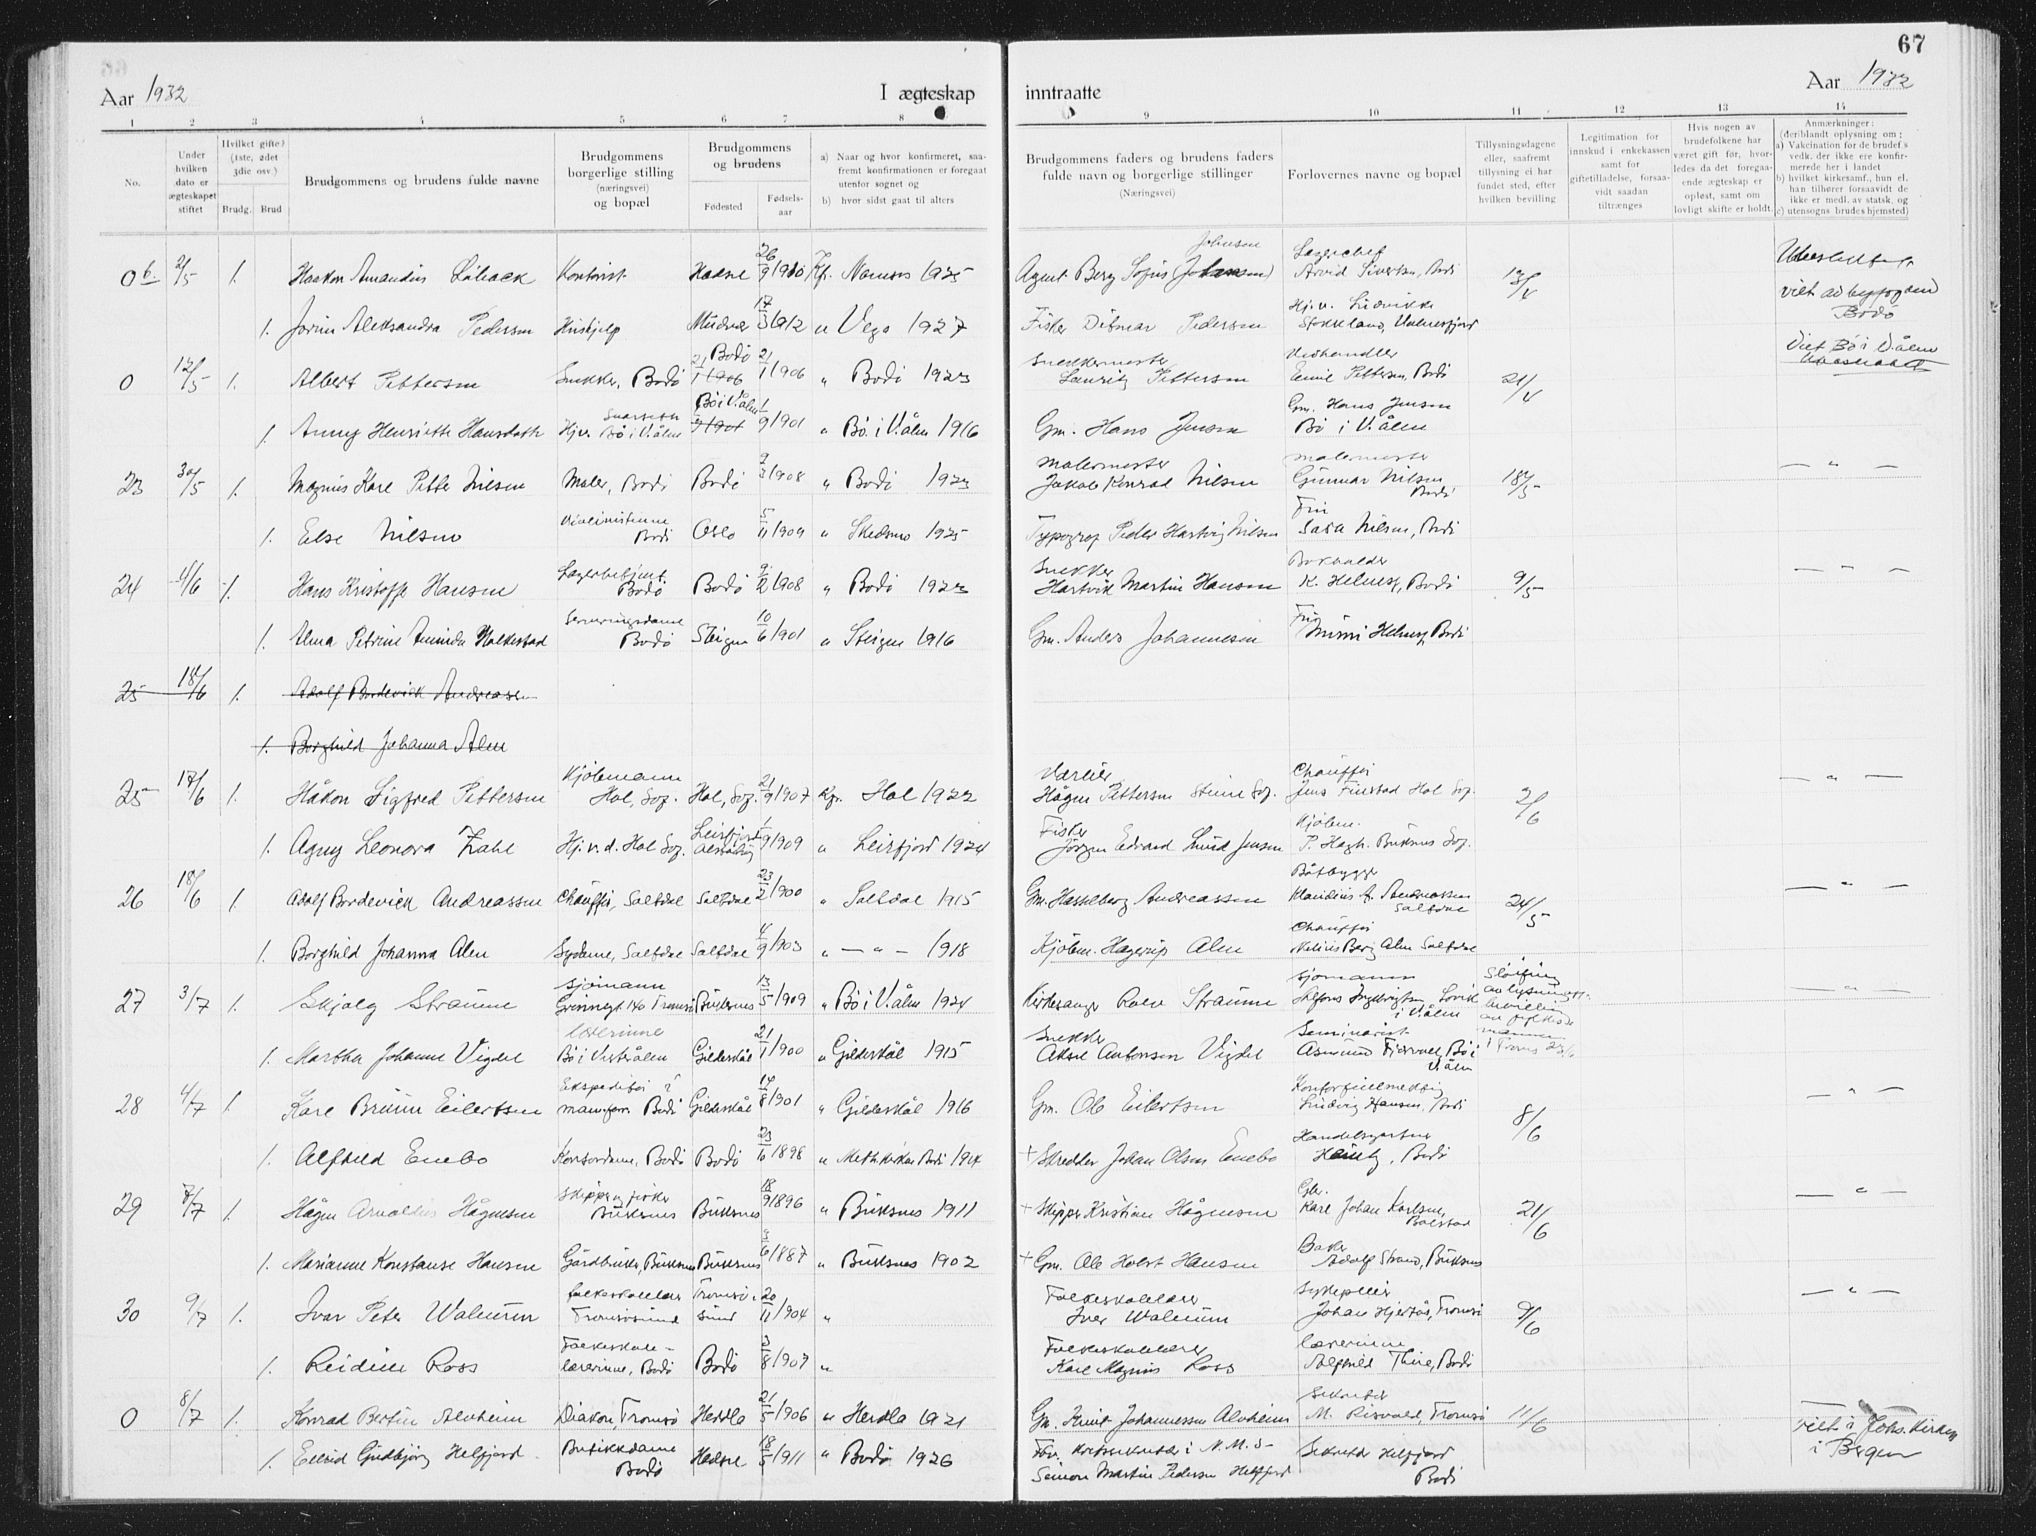 67
Aar 1932
I ægteskap
inntraatte
Aar 1932
1 2 3 4 5 6 7 8 9 10 11 12 13 14
No.
Under hvilken dato er ægteskapet stiftet
Hvilket gifte? (1ste, 2det 3die osv.)
Brudg. Brud
Brudgommens og brudens fulde navne
Brudgommens borgerlige stilling (næringsvei) og bopæl
Brudgommens og brudens
Fødested
Fødsels-aar
a) Naar og hvor konfirmeret, saafremt konfirmationen er foregaat utenfor sognet og
b) hvor sidst gaat til alters
Brudgommens faders og brudens faders fulde navn og borgerlige stillinger
(Næringsvei)
Forlovernes navne og bopæl
Tillysningsdagene eller, saafremt tillysning ei har fundet sted, efter hvilken bevilling
Legitimation for innskud i enkekassen samt for giftetilladelse, forsaavidt saadan tiltrænges
Hvis nogen av brudefolkene har været gift før, hvorledes da det foregaaende ægteskap er opløst, samt om lovligt skifte er holdt.
Anmærkninger: (deriblandt oplysning om:
a) Vakcination for de brudef.s vedk. der ikke ere konfirmerede her i landet
b) hvilket kirkesamf., hun el. han tilhører forsaavidt de ikke er medl. av statsk. og
c) utensogns brudes hjemsted)
0 b. 2/5 1. Haakon Amandus Kontorist 26/9 1910 Kf. Namsos 1925 Agent Berg Sofus Johnson Lagerchef Arvid Sivertsen, Bodø 13/4
viet av byfogden Bodø
1. Jorun Aleksandra Pedersen Hushjelp 17/3 1912 " Vega 1927 Fisker Ditmar Pedersen Hj.v.
0 12/5 1. Albert Pettersen Snekker, Bodø Bodø 21/1 1906 " Bodø 1923 Snekkermester Lauritz Pettersen Vedhandler Emil Pettersen, Bodø 21/4 Viet Bø i V.ålen
1. Anny Henriette Hansdatter Hj.v. Bø i V.ålen Bø i V.ålen 1/9 1901 " Bø i V.ålen 1916 Gm. Hans Jensen Gm. Hans Jensen Bø i V.ålen
23 30/5 1. Magnus Kare Petter Nilsen Maler, Bodø Bodø 9/3 1908 " Bodø 1923 Malermester Jakob Konrad Nilsen Malermester Gunnar Nilsen Bodø 18/5 — " —
1. Else Nilsen Violinistinne Bodø Oslo 5/11 1909 " Skedsmo 1925 Typograf Peder Hartvig Nilsen Fru Sara Nilsen, Bodø
24 4/6 1. Hans Kristoffer Hansen Lagerbetjent Bodø Bodø 9/2 1908 " Bodø 1923 Snekker Hartvik Martin Hansen Bokholder K. Helness, Bodø 9/5 — " —
1. Alma Petrine Aminda Halkestad Serveringsdame Bodø Steigen 10/6 1901 " Steigen 1916 Gm. Anders Johannesen Fru Mimi Helness, Bodø
25 18/6 1. Adolf Bordevick Andreassen
1. Borghild Johanna Alm
25 17/6 1. Håkon Sigfred Pettersen Kjøbmann Hol, Sog. Hol, Sog. 21/9 1907 Kf. Hol 1922 Hågen Pettersen Steine Sog. Chauffør Jens Finstad Hol Sog. 2/6 — " —
1. Agny Leonora Zahl Hj.v.d. Hol Sog. Leirfjord 1/9 1909 " Leirfjord 1924 Fisker Jørgen Edvard Lund Jensen Kjøbm. P. Hagh. Buksnes Sog.
26 18/6 1. Adolf Bordevick Andreassen Chauffør, Saltdal Saltdal 23/2 1900 " Saltdal 1915 Gm. Hasselberg Andreassen Båtbygger Klaudius A. Andreassen Saltdal 24/5 — " —
1. Borghild Johanna Alm Sydame, Saltdal Saltdal 4/9 1903 " — " — 1918 Kjøbm. Hagerup Alm Chauffør Nelius Berg Alm Saltdal
27 3/7 1. Skjalg Straume Sjømann Grønnegt. 140 Tromsø Buksnes 13/5 1909 " Bø i V.ålen 1924 Kirkesanger Rolv Straume Sjømann i V.ålen — " —
1. Martha Johanne Vigdel Lærerinne Bø i Vesterålen Gildeskål 21/1 1900 " Gildeskål 1915 Snekker Aksel Antonsen Vigdel Seminarist Asmund Bø i V.ålen
28 4/7 1. Kare Bruun Eilertsen Ekspeditør i manufor. Bodø Gildeskål 14/8 1901 " Gildeskål 1916 Gm. Ole Eilertsen Kontorfullmektig Ludvig Hansen, Bodø 8/6 — " —
1. Alfhild Enebo Kontordame, Bodø Bodø 23/6 1898 " Meth.kirken Bodø 1914 + Skredder Johan Olsen Enebo Handelsgartner Heintz, Bodø
29 7/7 1. Hågen Arnoldus Hågensen Skipper og fisker Buksnes Buksnes 18/9 1896 " Buksnes 1911 + Skipper Kristian Hågensen Gbr. Kare Johan Karlsen, Bolstad 21/6 — " —
1. Marianne Konstanse Hansen Gårdbruker, Buksnes Buksnes 3/6 1887 " Buksnes 1902 + Gm. Ole Holst Hansen Baker Adolf Strand, Buksnes
30 9/7 1. Ivar Peter Walnum Folkeskolelærer Tromsøsund Tromsøsund 20/11 1904 " Folkeskolelærer Iver Walnum Sykepleier Johan Hjertås, Tromsø 9/6 — " —
1. Reidun Ross Folkeskolelærerinne, Bodø Bodø 3/8 1907 " Folkeskolelærer Kare Magnus Ross Lærerinne Alfhild Thue, Bodø
0 8/7 1. Konrad Bertin Alvheim Diakon Tromsø Herdla 21/5 1906 " Herdla 1921 Gm. Knut Johannessen Alvheim Sekretær M. Risvold, Tromsø 11/6 Viet i Johs. kirken i Bergen
1. Eldrid Gudbjørg Helfjord Butikkdame Bodø Hadsel 18/5 1911 " Bodø 1926 Forv. kretssekretær i N.M.S. Simon Martin Pedersen Helfjord Sekretær Helfjord Bodø